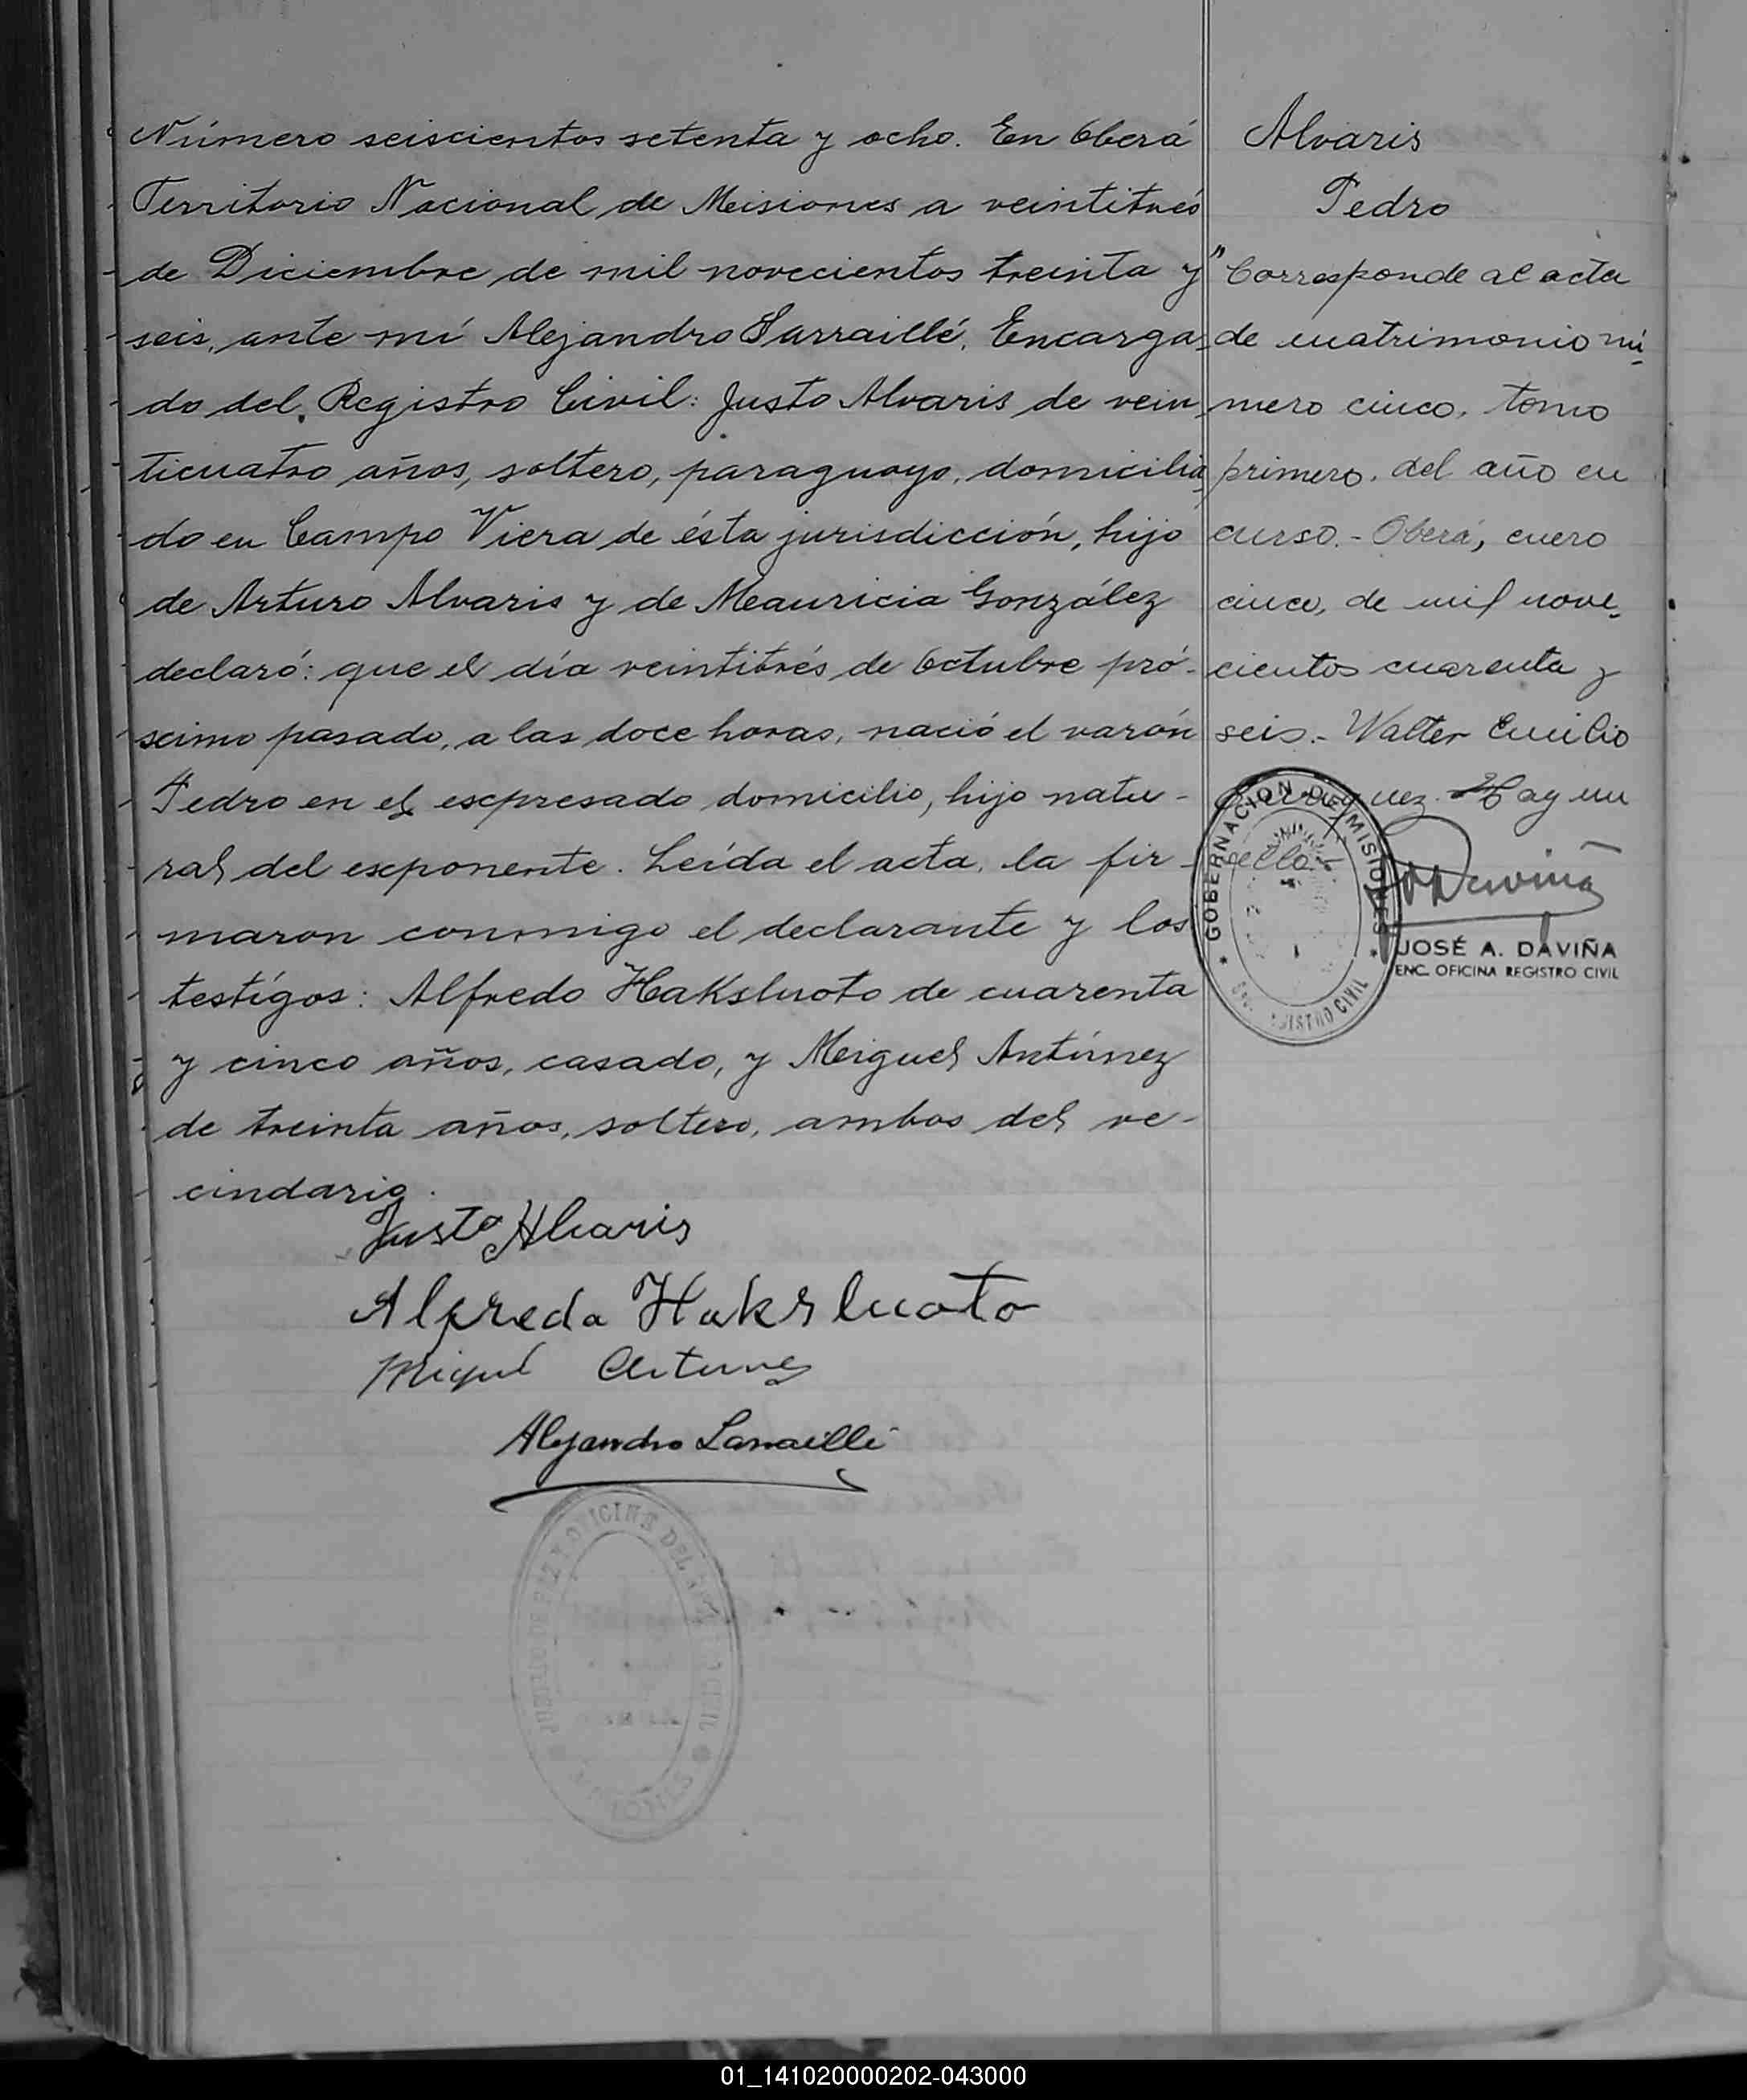 Número seiscientos setenta y ocho. En Oberá
Territorio Nacional de Misiones a veintitrés
de Diciembre de mil novecientos treinta y
seis, ante mí Alejandro Larraillé, Encarga-
do del Registro Civil: Justo Alvaris de vein-
ticuatro años, soltero, paraguayo, domicilia-
do en Campo Viera de ésta jurisdicción, hijo
de Arturo Alvaris y de Mauricia González
declaró: que el día veintitrés de Octubre pró-
scimo pasado, a las doce horas, nació el varón
Pedro en el escpresado domicilio, hijo natu-
ral del escponente. Leída el acta, la fir-
maron conmigo el declarante y los
testígos: Alfredo Haksluoto de cuarenta
y cinco años, casado, y Miguel Antúnez
de treinta años, soltero, ambos del ve-
cindario.
Justo Alvaris
Alfredo Haksluoto
Miguel Antunez
Alejandro Larraillé
JUZGADO DE PAZ Y OFICINA DEL REGISTRO CIVIL
MISIONES
Alvaris
Pedro
"Corresponde al acta
de matrimonio nú-
mero cinco, tomo
primero, del año en
curso.- Oberá, enero
cinco, de mil nove-
cientos cuarenta y
seis.- Walter Emilio
Hay un
sello.-
GOBERNACION DE MISIONES
REGISTRO CIVIL
JOSÉ A. DAVIÑA
ENC. OFICINA REGISTRO CIVIL
01_141020000202-043000